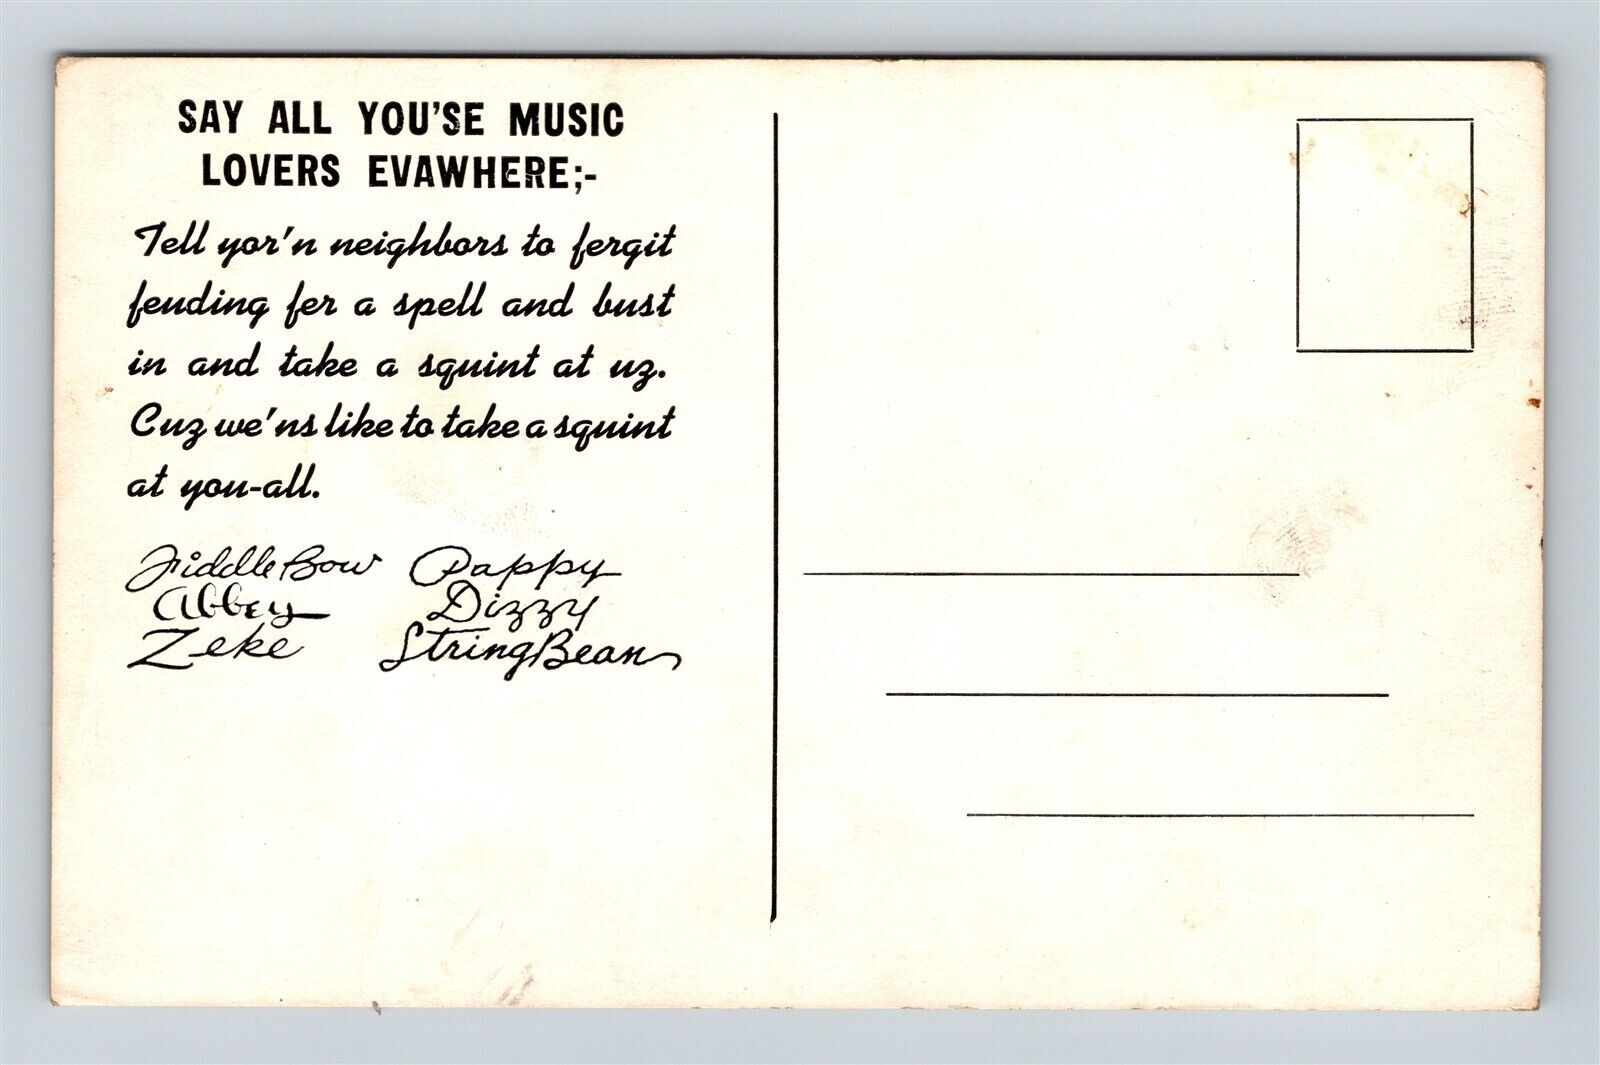 SAY ALL YOU'SE MUSIC
LOVERS EVAWHERE;-
Tell yor'n neighbors to fergit
feuding fer a spell and bust
in and take a squint at uz.
Cuz we'ns like to take a squint
at you-all.
Fiddle Bow Pappy
Abbey Dizzy
Zeke StringBean